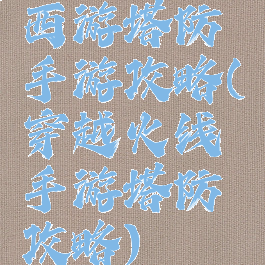 西游塔防
手游攻略(
穿越火线
手游塔防
攻略)